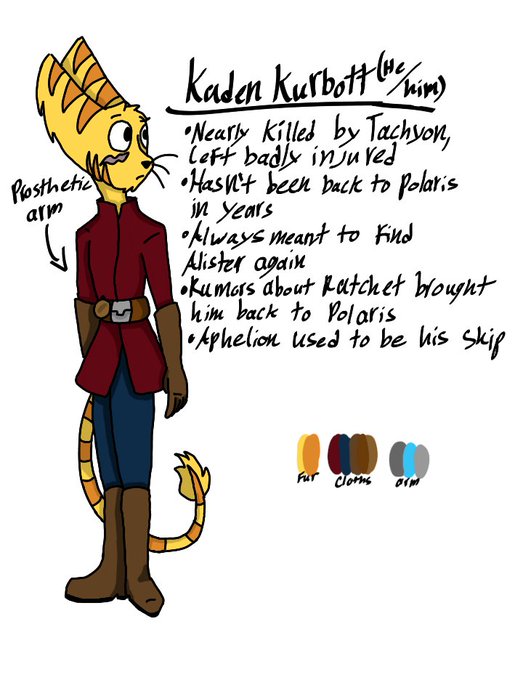 Kaden Kurbott (He/him)
•Nearly killed by Tachyon,
Left badly injured
•Hasn't been back to Polaris
in years
•Always meant to find
Alister again
•Rumors about Ratchet brought
him back to Polaris
•Aphelion used to be his ship
Prosthetic
arm
Fur
Cloths
arm